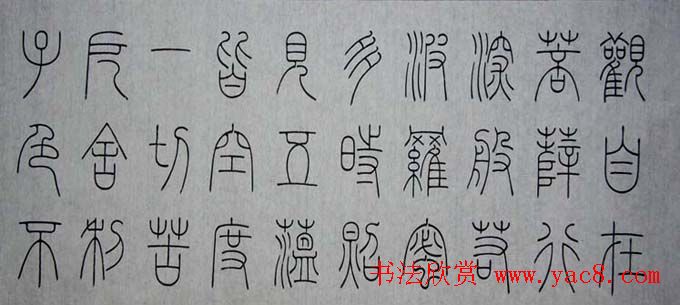 觀自在
菩薩行
深般若
波羅蜜
多時照
見五薀
皆空度
一切苦
厄舍利
子色不
书法欣赏 www.yac8.com